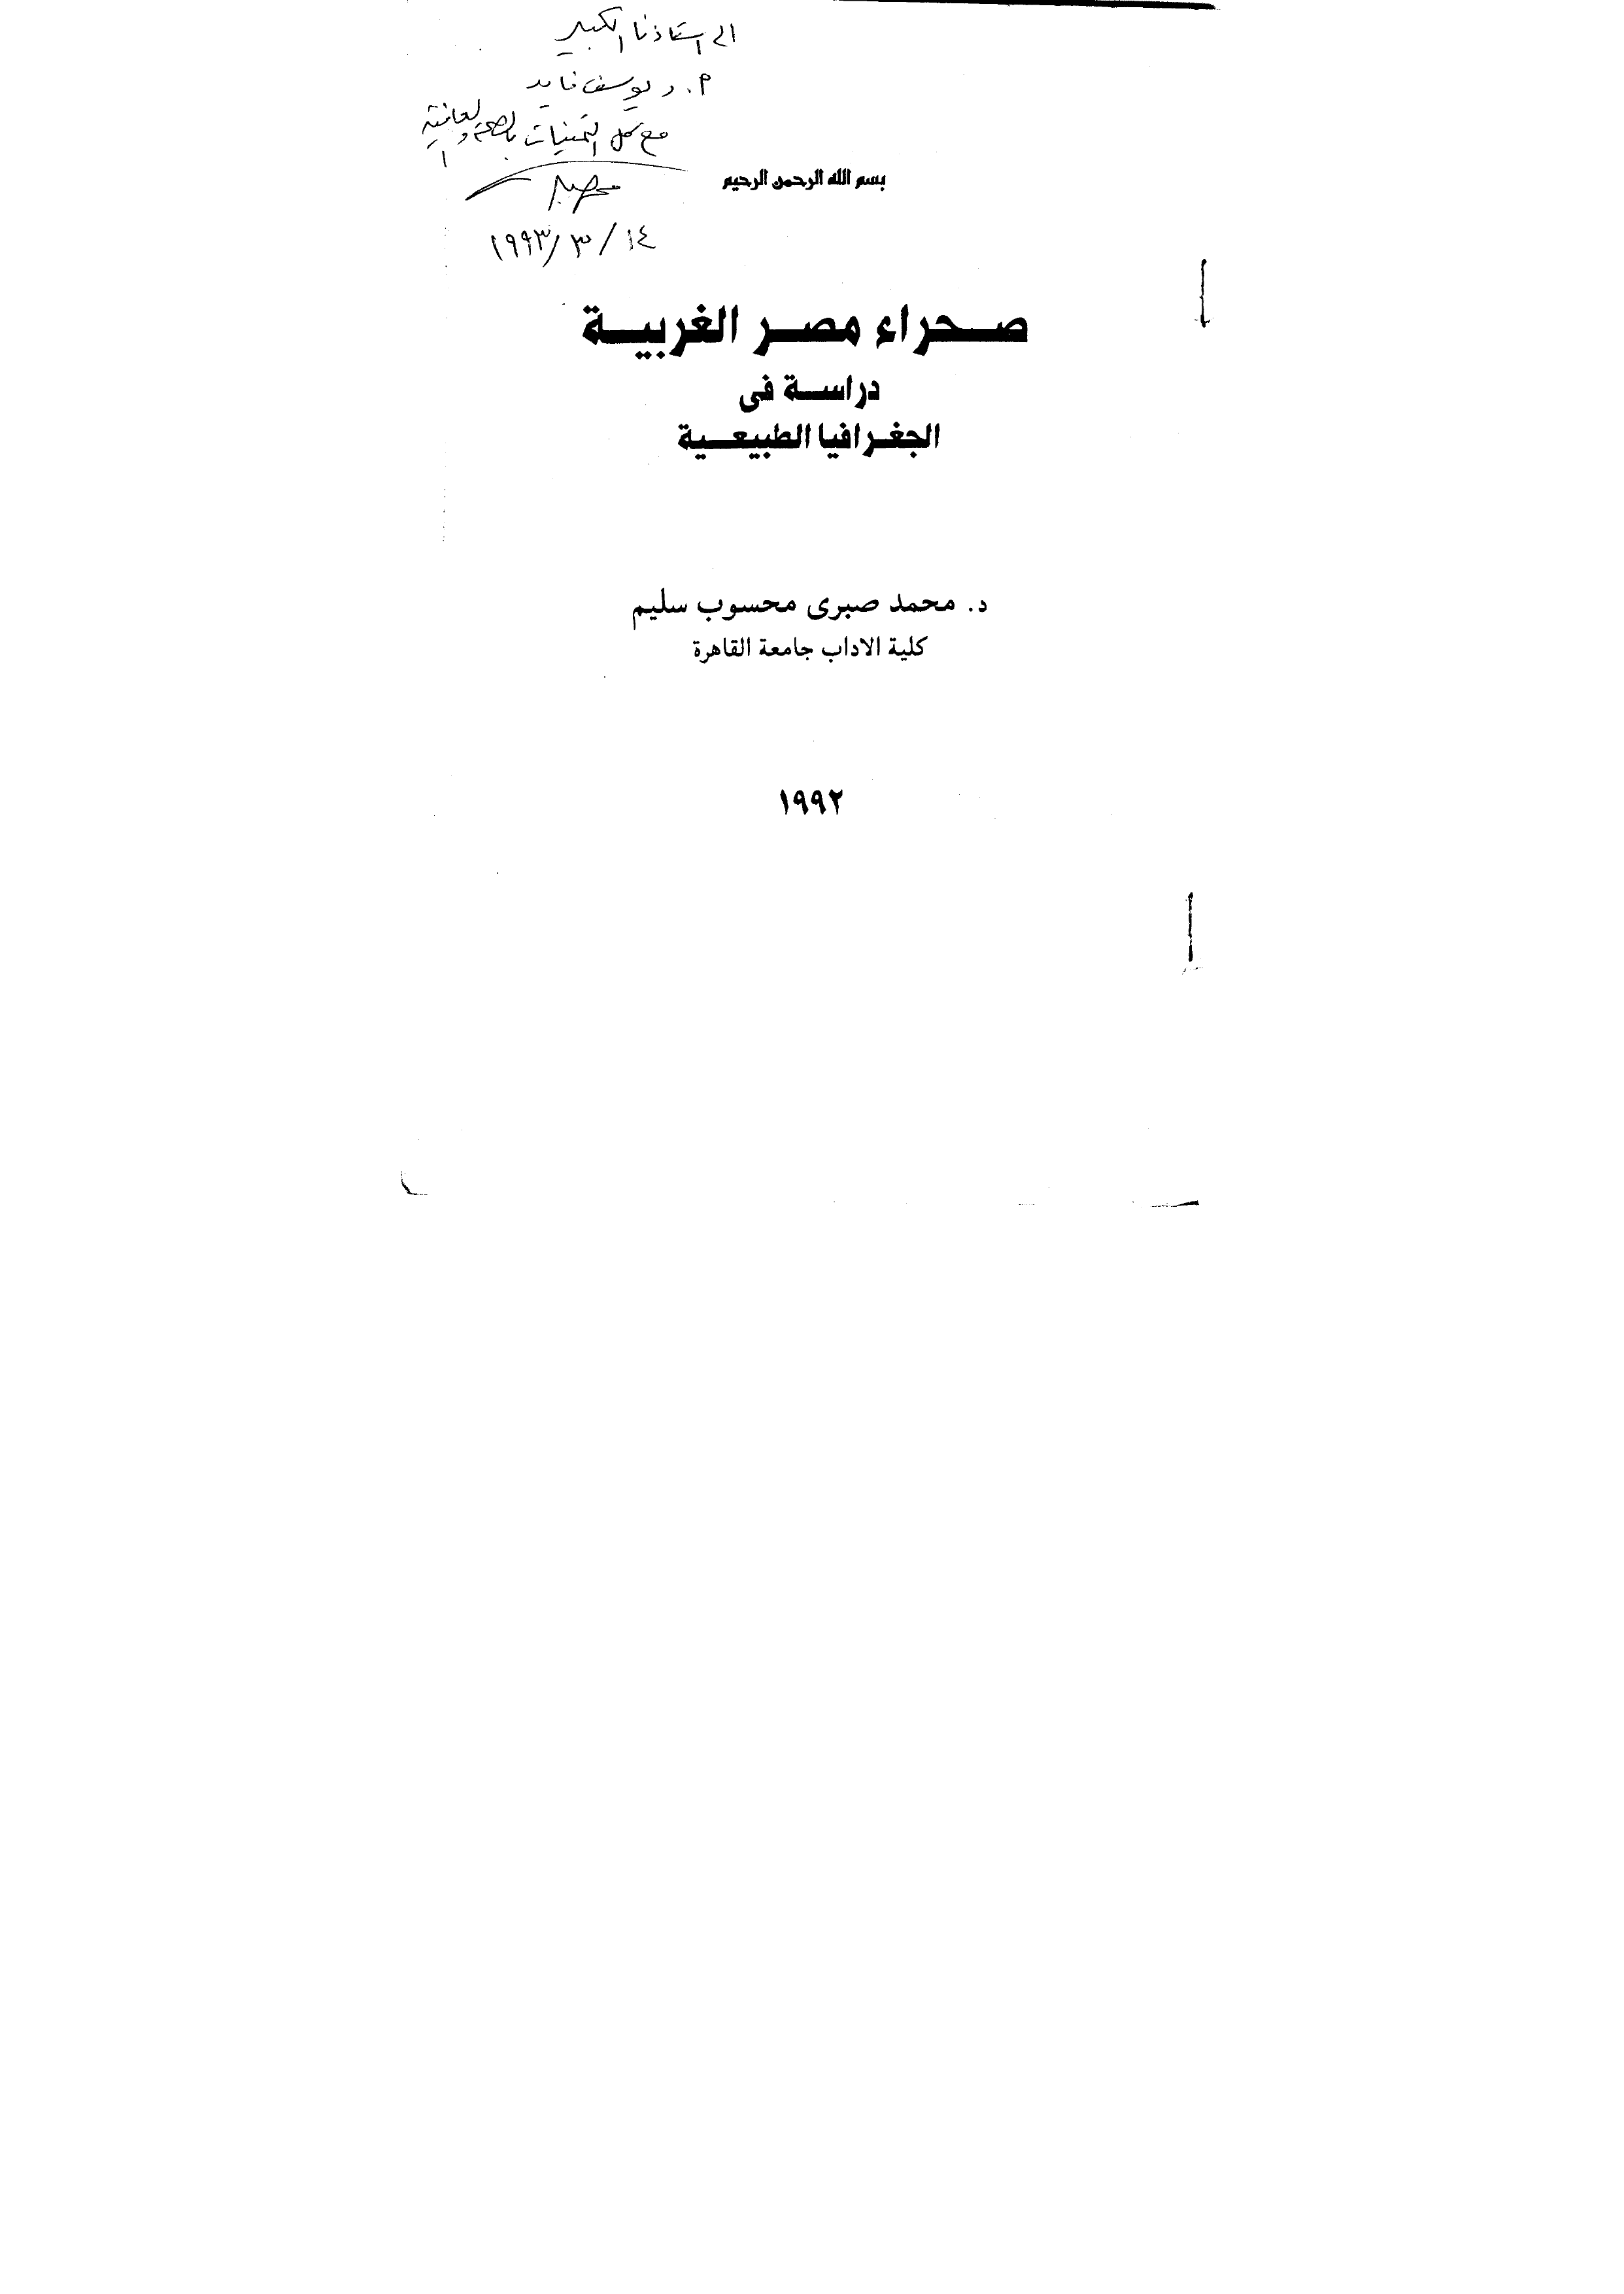 الى استاذنا الكبير
أ. د يوسف فايد
مع كل التمنيات بالصحة والعافية
١٤ / ٣ / ١٩٩٣
بسم الله الرحمن الرحيم
صحراء مصر الغربية
دراسة فى
الجغرافيا الطبيعية
د. محمد صبرى محسوب سليم
كلية الاداب جامعة القاهرة
١٩٩٢